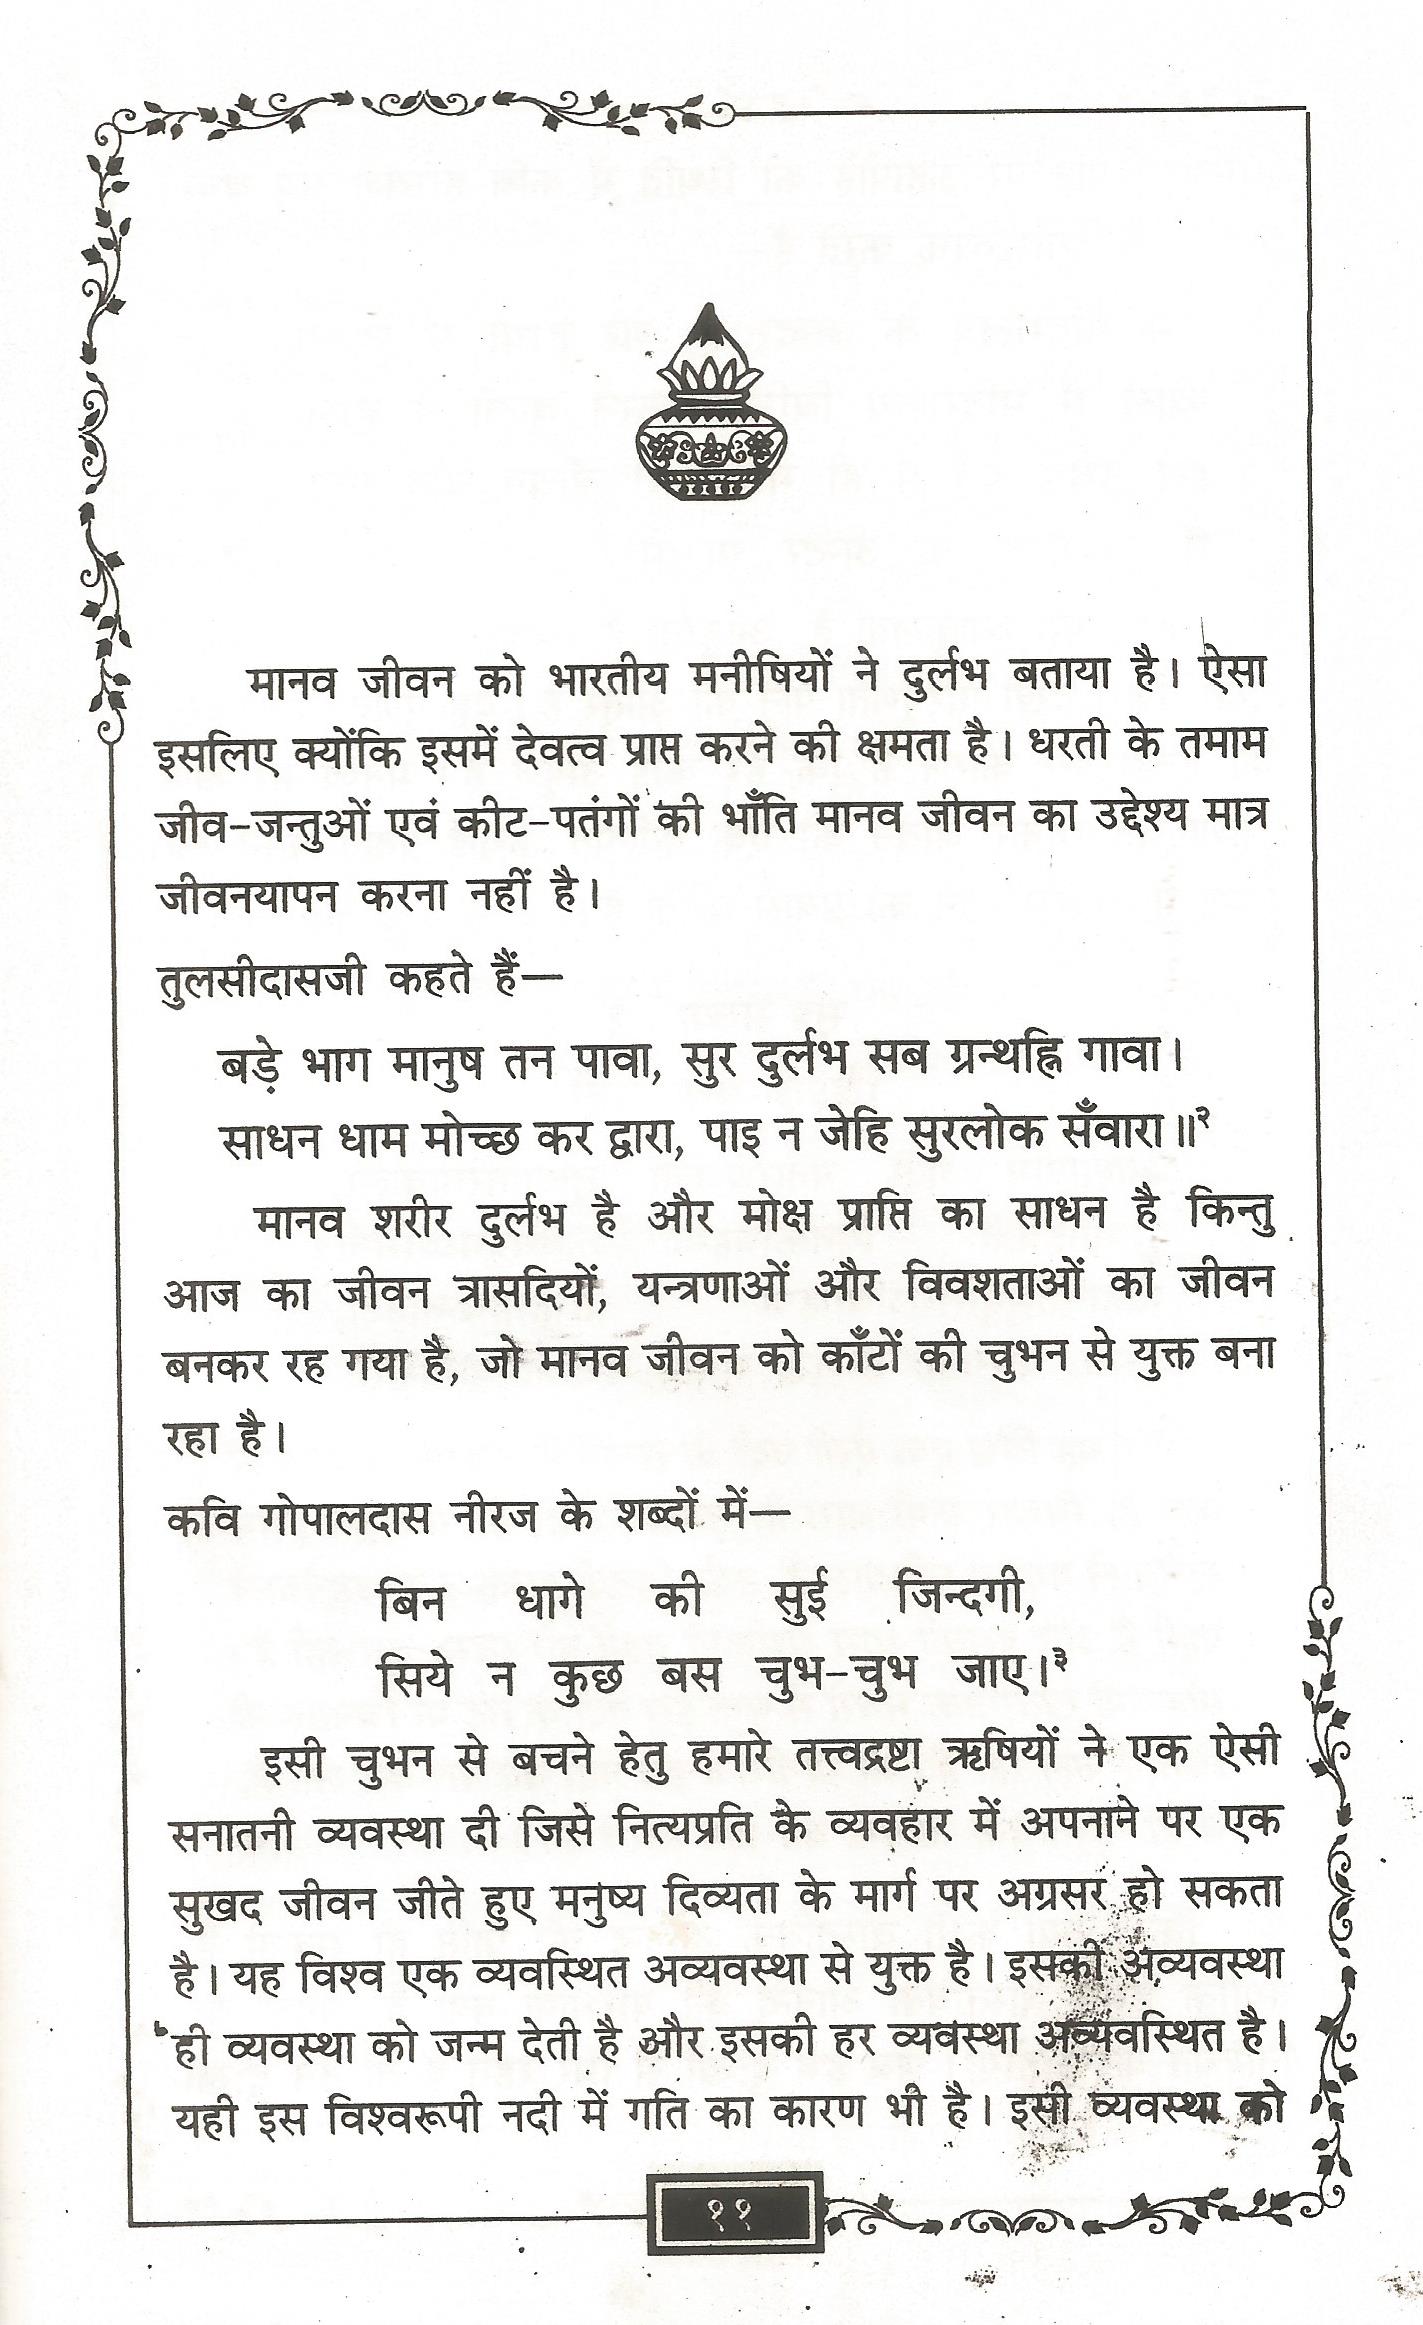 मानव जीवन को भारतीय मनीषियों ने दुर्लभ बताया है। ऐसा
इसलिए क्योंकि इसमें देवत्व प्राप्त करने की क्षमता है। धरती के तमाम
जीव-जन्तुओं एवं कीट-पतंगों की भाँति मानव जीवन का उद्देश्य मात्र
जीवनयापन करना नहीं है।
तुलसीदासजी कहते हैं—
बड़े भाग मानुष तन पावा, सुर दुर्लभ सब ग्रन्थह्नि गावा।
साधन धाम मोच्छ कर द्वारा, पाइ न जेहि सुरलोक सँवारा॥२
मानव शरीर दुर्लभ है और मोक्ष प्राप्ति का साधन है किन्तु
आज का जीवन त्रासदियों, यन्त्रणाओं और विवशताओं का जीवन
बनकर रह गया है, जो मानव जीवन को काँटों की चुभन से युक्त बना
रहा है।
कवि गोपालदास नीरज के शब्दों में—
बिन धागे की सुई जिन्दगी,
सिये न कुछ बस चुभ-चुभ जाए।३
इसी चुभन से बचने हेतु हमारे तत्त्वद्रष्टा ऋषियों ने एक ऐसी
सनातनी व्यवस्था दी जिसे नित्यप्रति के व्यवहार में अपनाने पर एक
सुखद जीवन जीते हुए मनुष्य दिव्यता के मार्ग पर अग्रसर हो सकता
है। यह विश्व एक व्यवस्थित अव्यवस्था से युक्त है। इसकी अव्यवस्था
ही व्यवस्था को जन्म देती है और इसकी हर व्यवस्था अव्यवस्थित है।
यही इस विश्वरूपी नदी में गति का कारण भी है। इसी व्यवस्था को
११